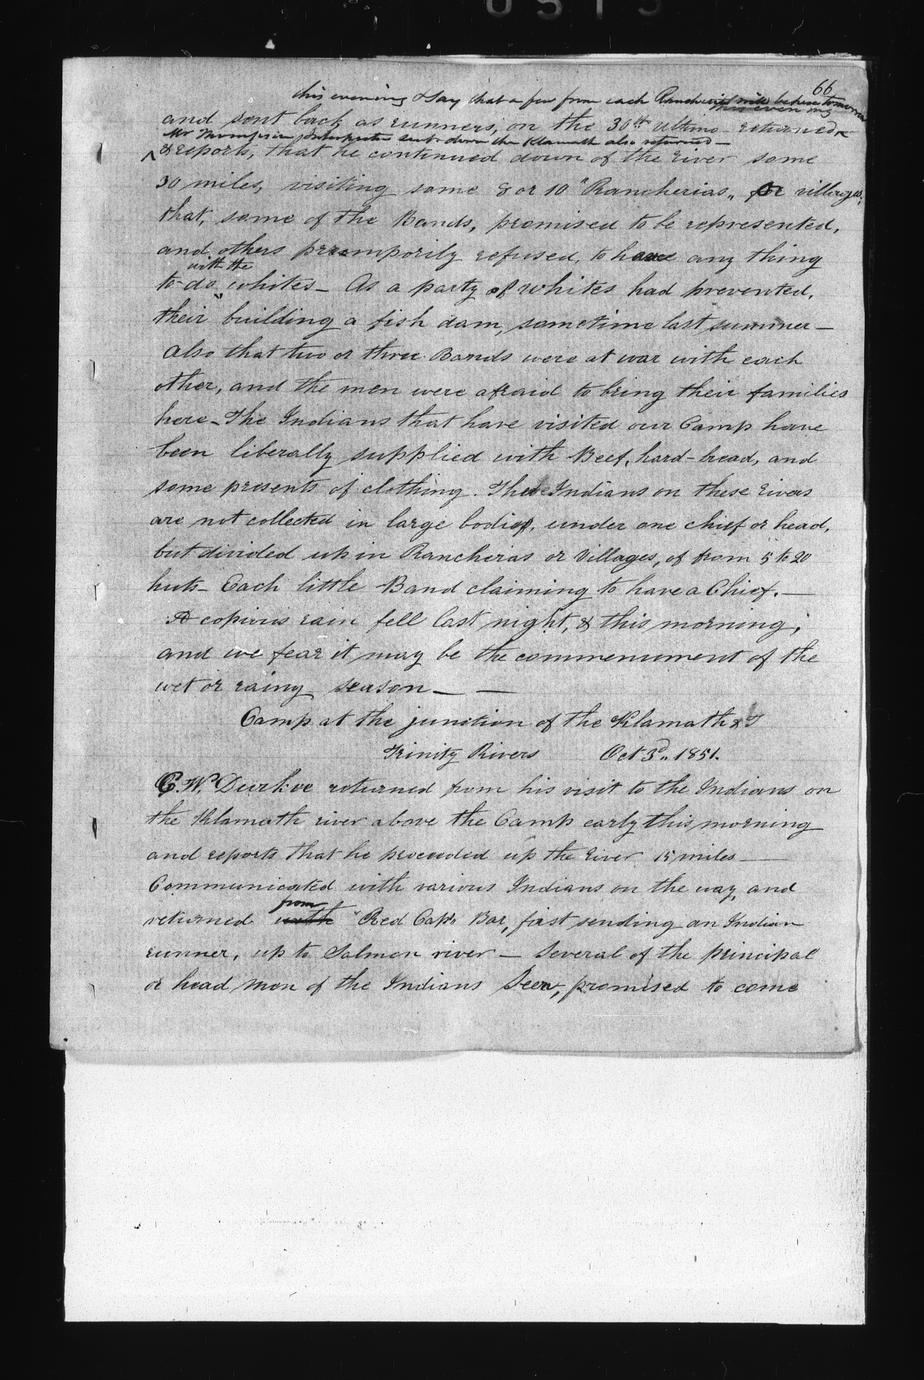 66
this evening & say that a few from each Rancheria will be here tomorrow
this evening
and sent back as runners, on the 30th ultimo - returned
Mr Thompson Interpreter sent down the Klamath also returned -
& reports, that he continued down of the river some
30 miles, visiting some 8 or 10 "Rancherias" or villages,
that, some of the Bands, promised to be represented,
and others preemporily refused, to have any thing
with the
to do whites - As a party of whites had prevented,
their building a fish dam, sometime last summer -
Also that two or three Bands were at war with each
other, and the men were afraid to bring their families
here - The Indians that have visited our Camp have
been liberally supplied with Beef, hard-bread, and
some presents of clothing. The Indians on these rivers
are not collected in large bodies, under one chief or head,
but divided up in Rancherias or Villages, of from 5 to 20
huts - Each little Band claiming to have a Chief. -
A copious rain fell last night, & this morning,
and we fear it may be the commencement of the
wet or rainy season - -
Camp at the junction of the Klamath &
Trinity Rivers Oct 3d, 1851.
C. W. Durkee returned from his visit to the Indians on
the Klamath river above the Camp early this morning
and reports that he proceeded up the river 15 miles -
Communicated with various Indians on the way, and
from
returned with "Red Cap's Bar, first sending an Indian
runner, up to Salmon river - Several of the principal
or head men of the Indians seen, promised to come